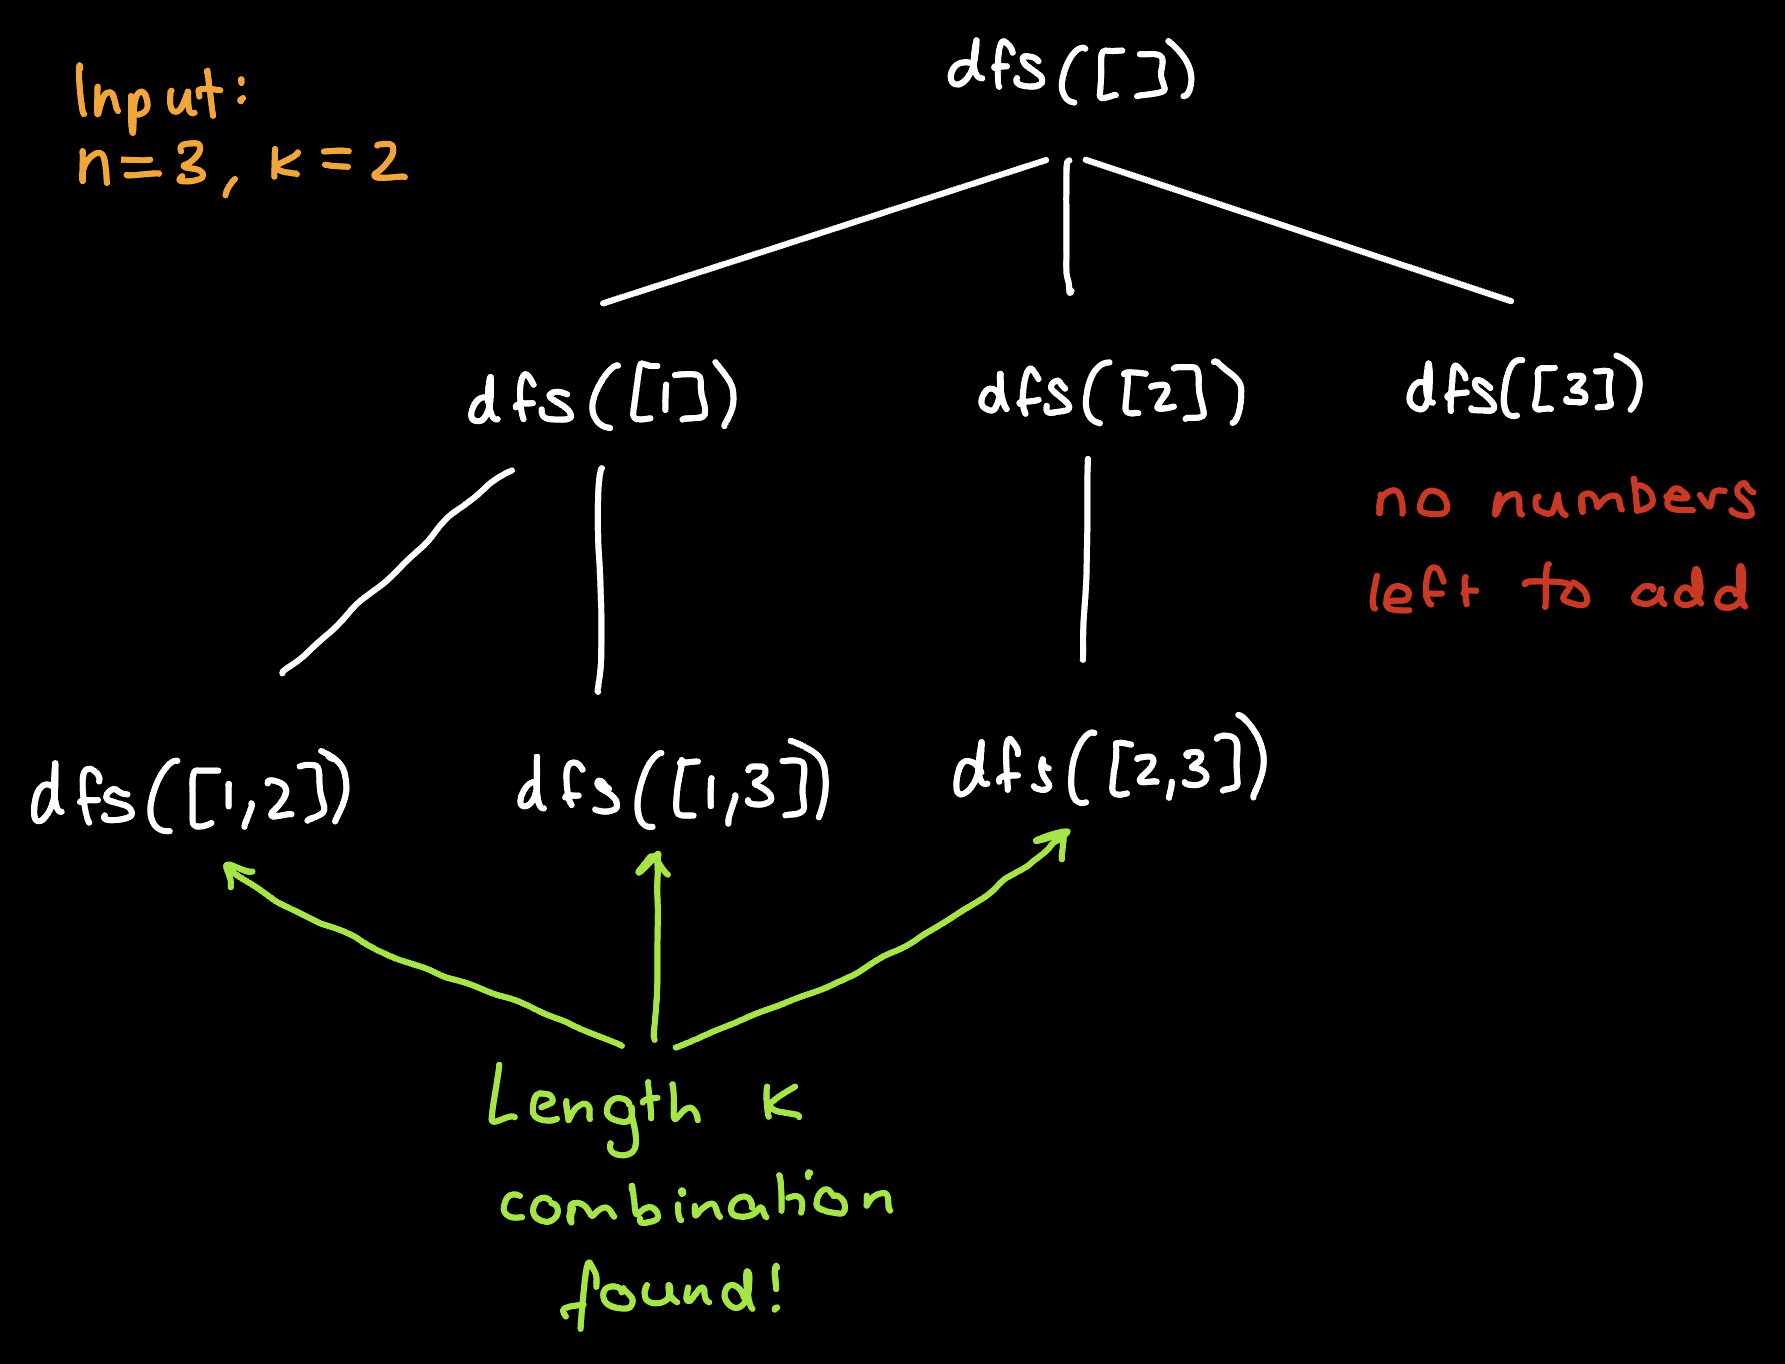 Input:
n=3, k=2
dfs([])
dfs([1])
dfs([2])
dfs([3])
no numbers
left to add
dfs([1,2])
dfs([1,3])
dfs([2,3])
Length k
combination
found!